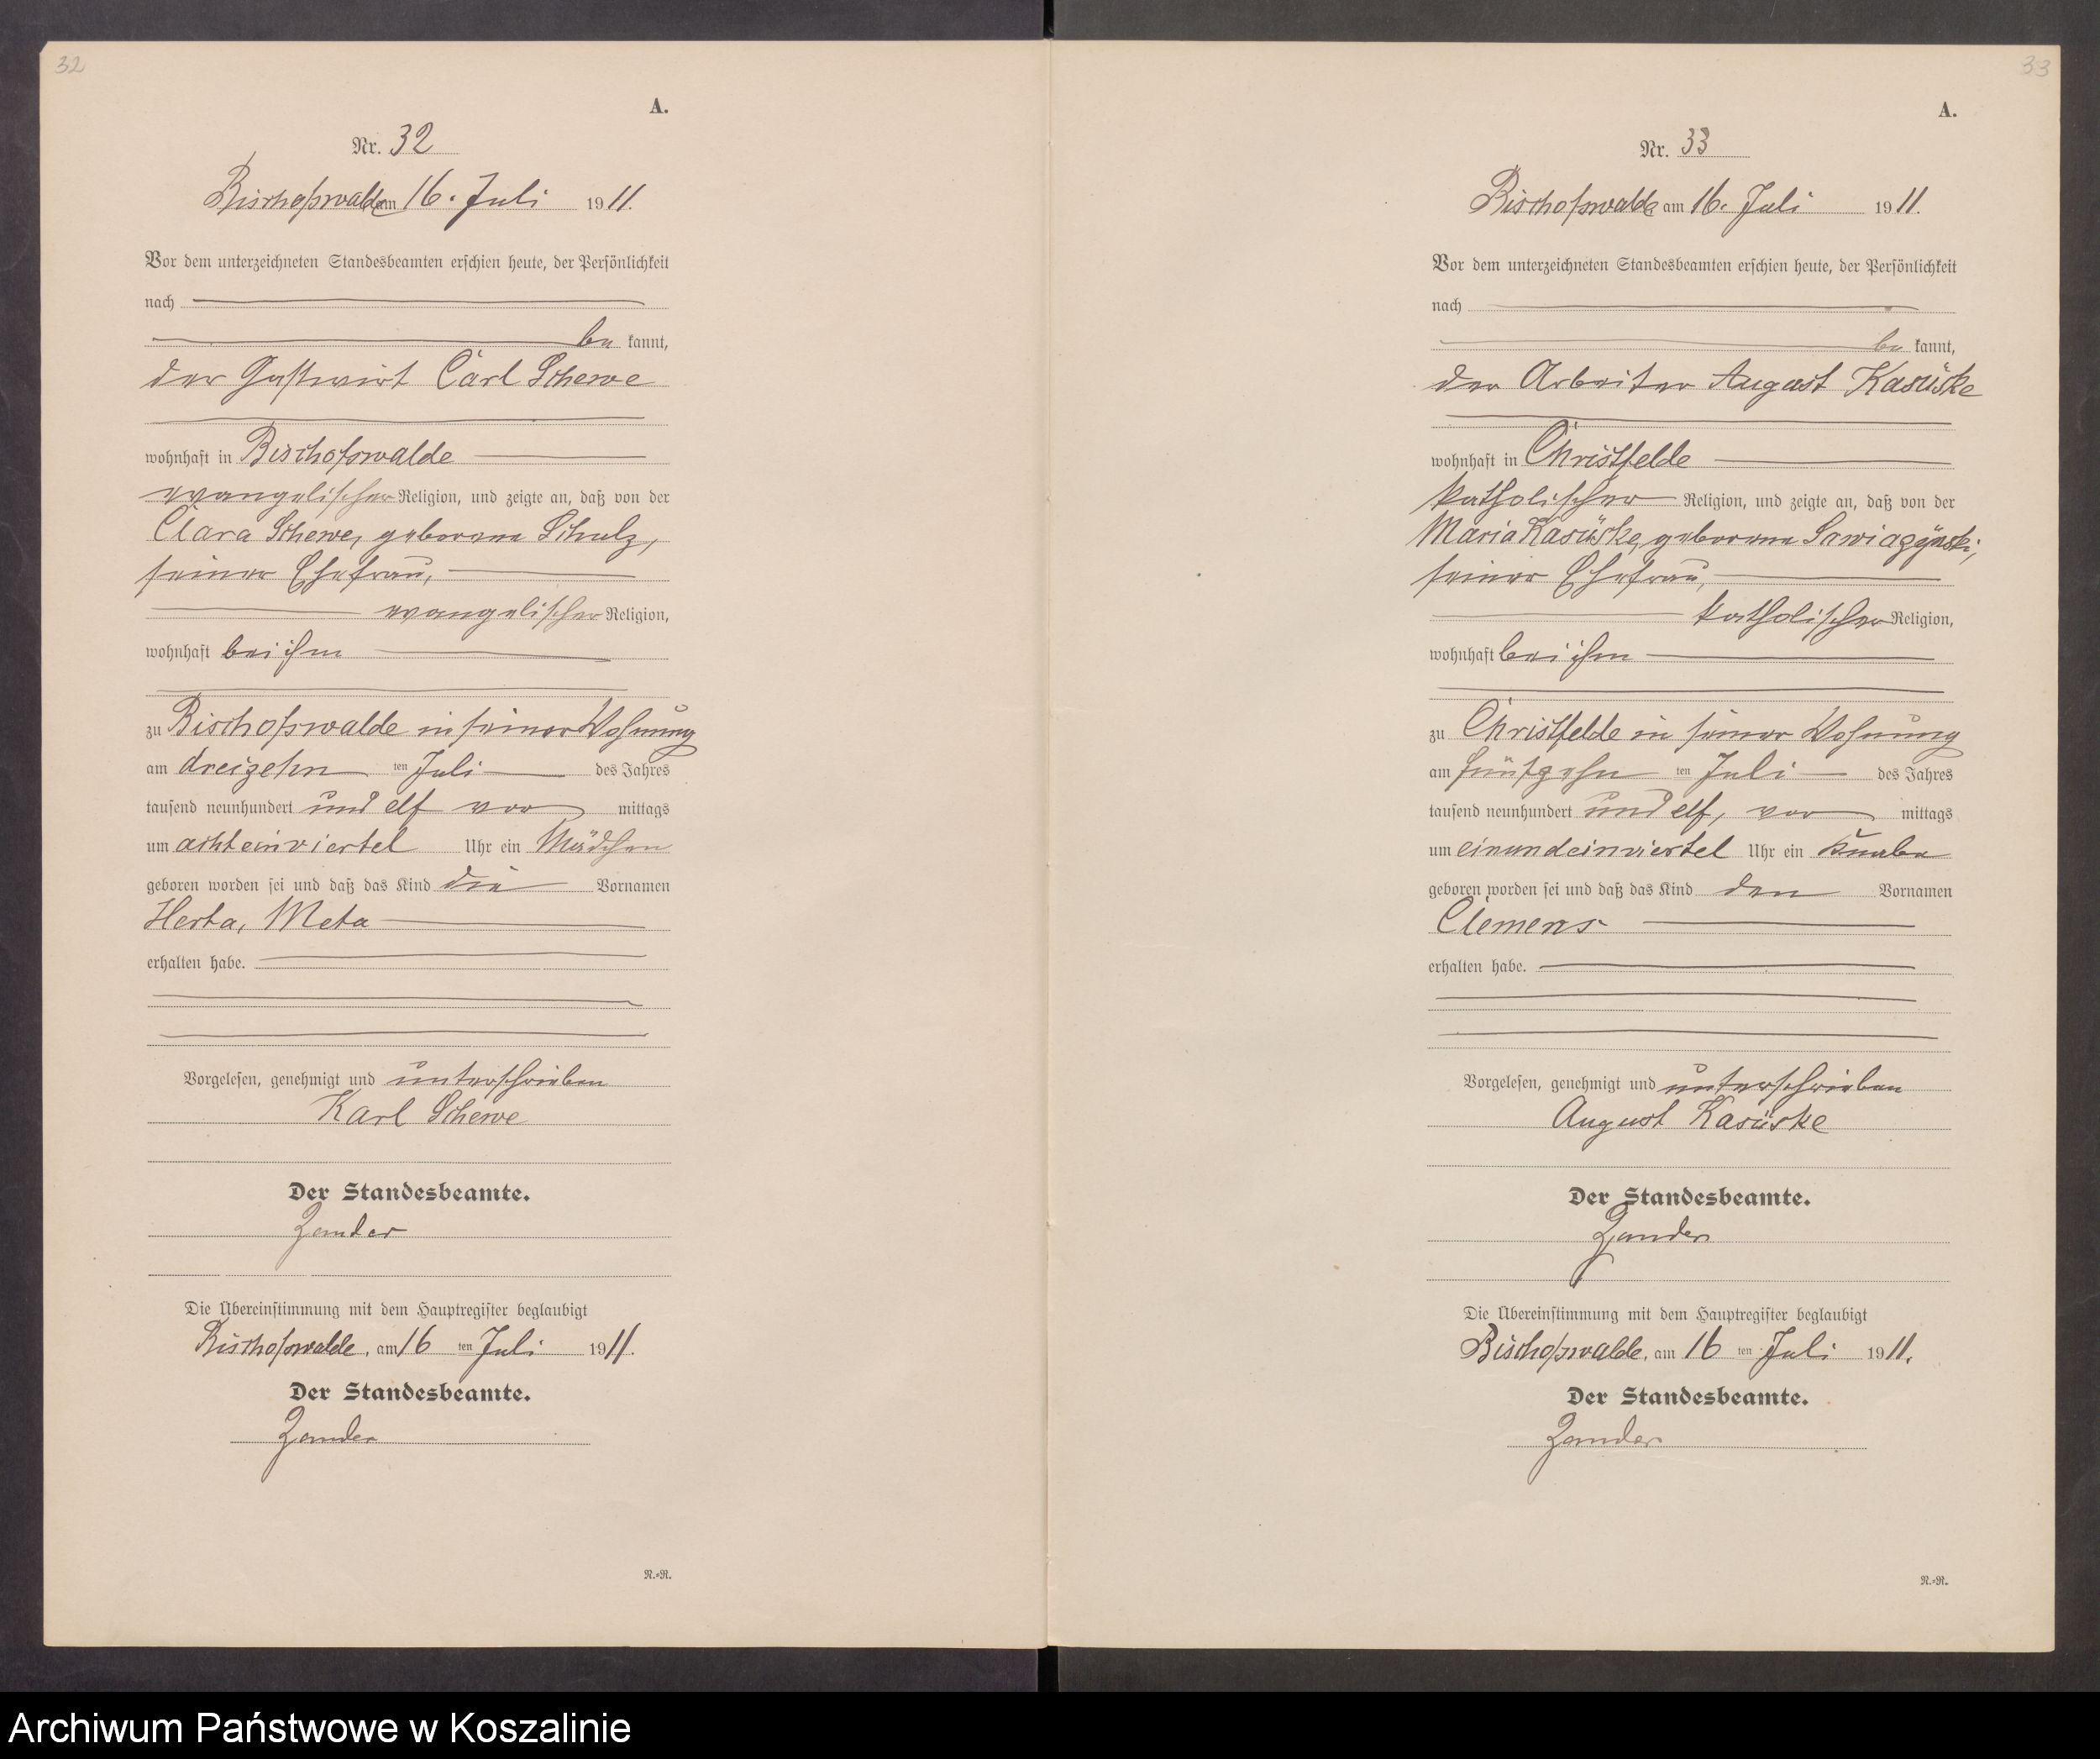 32
A.
Nr. 32
Bischofswalde am 16. Juli 1911.
Vor dem unterzeichneten Standesbeamten erschien heute, der Persönlichkeit
nach
be kannt,
der Gastwirt Carl Schewe
wohnhaft in Bischofswalde
evangelischer Religion, und zeigte an, daß von der
Clara Schewe, geborene Schulz,
seiner Ehefrau,
evangelischer Religion,
wohnhaft bei ihm
zu Bischofswalde in seiner Wohnung
am dreizehn ten Juli des Jahres
tausend neunhundert und elf vor mittags
um achteinviertel Uhr ein Mädchen
geboren worden sei und daß das Kind die Vornamen
Herta, Meta
erhalten habe.
Vorgelesen, genehmigt und unterschrieben
Karl Schewe
Der Standesbeamte.
Zander
Die Übereinstimmung mit dem Hauptregister beglaubigt
Bischofswalde, am 16 ten Juli 1911.
Der Standesbeamte.
Zander
N.=R.
33
A.
Nr. 33
Bischofswalde am 16. Juli 1911.
Vor dem unterzeichneten Standesbeamten erschien heute, der Persönlichkeit
nach
be kannt,
der Arbeiter August Kasüske
wohnhaft in Christfelde
katholischer Religion, und zeigte an, daß von der
Maria Kasüske, geborene
seiner Ehefrau,
katholischer Religion,
wohnhaft bei ihm
zu Christfelde in seiner Wohnung
am fünfzehn ten Juli des Jahres
tausend neunhundert und elf, vor mittags
um einundeinviertel Uhr ein Knabe
geboren worden sei und daß das Kind den Vornamen
Clemens
erhalten habe.
Vorgelesen, genehmigt und unterschrieben
August Kasüske
Der Standesbeamte.
Zander
Die Übereinstimmung mit dem Hauptregister beglaubigt
Bischofswalde, am 16 ten Juli 1911.
Der Standesbeamte.
Zander
N.=R.
Archiwum Państwowe w Koszalinie